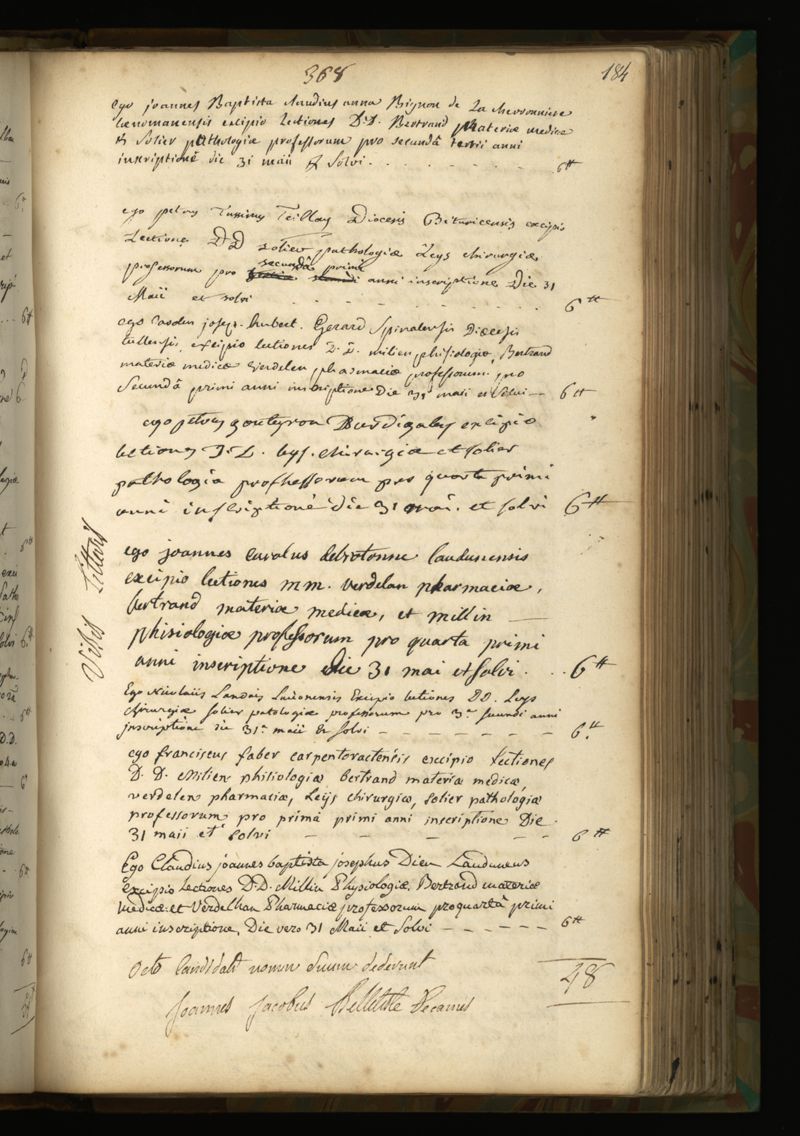 368
184
ego joannes Baptista claudius anna Bignon de La
Cenomanensis excipio Lectiones D.D. Bertrand materiæ medicæ
& Solier pathologiæ professorum pro secundâ tertii anni
inscriptione die 31 maii & Solvi. 6#
ego petrus Teillay Diocesis Bituricensis excipio
Lectiones DD Solier pathologiæ Leys chirurgiæ
secundâ primi
professorum pro anni inscriptione Die 31
Maii et solvi 6#
ego joseph. hubert. Gerard Spinalensis Diœcesis
tullensis, excipio lectiones D.D. milien phisiologiæ, Bertrand
materiæ medicæ verdelen pharmaciæ professorum pro
Secundâ primi anni inscriptione Die 31 maii et Solvi -- 6#
ego petrus gouteyron Burdigalus excipio
lectiones D.D. leys. chirurgiæ et solier
pathologia proffessorum per quarta primi
anni inscriptione die 31 mai. et solvi 6#
Vidit Litteras
ego joannes carolus debrotonne laudunensis
excipio lectiones mm. verdelan pharmaciæ,
bertrand materiæ medicæ, et millin —
phisiologiæ professorum pro quarta primi
anni inscriptione die 31 mai et solvi . . . 6#
Ego Nicolaüs Landais Lucionensis Excipio lectiones DD. Leys
chirurgiæ solier patologiæ professorum pro 3a secundi anni
inscriptione die 31a maii & solvi — — — — — — 6#
ego franciscus faber carpentoractensis excipio Lectiones
D.D. Milien phisiologiæ bertrand materiæ medicæ,
verdelen pharmaciæ, Leijs chirurgiæ, solier pathologiæ
professorum pro primâ primi anni inscriptione Die
31 maii et solvi — — — — — 6#
Ego Claudius joannes baptista josephus Dieu Lauduneus
Excipio Lectiones D.D. Millin Physiologiæ, Bertrand materiæ
medicæ et Verdelhan Pharmaciæ professorum pro quartâ primi
anni inscriptione, Die vero 31 Maii et Solvi — — — — — — 6#
Octo Candidati nomen suum dederunt 48
Joannes Jacobus Belleteste Decanus